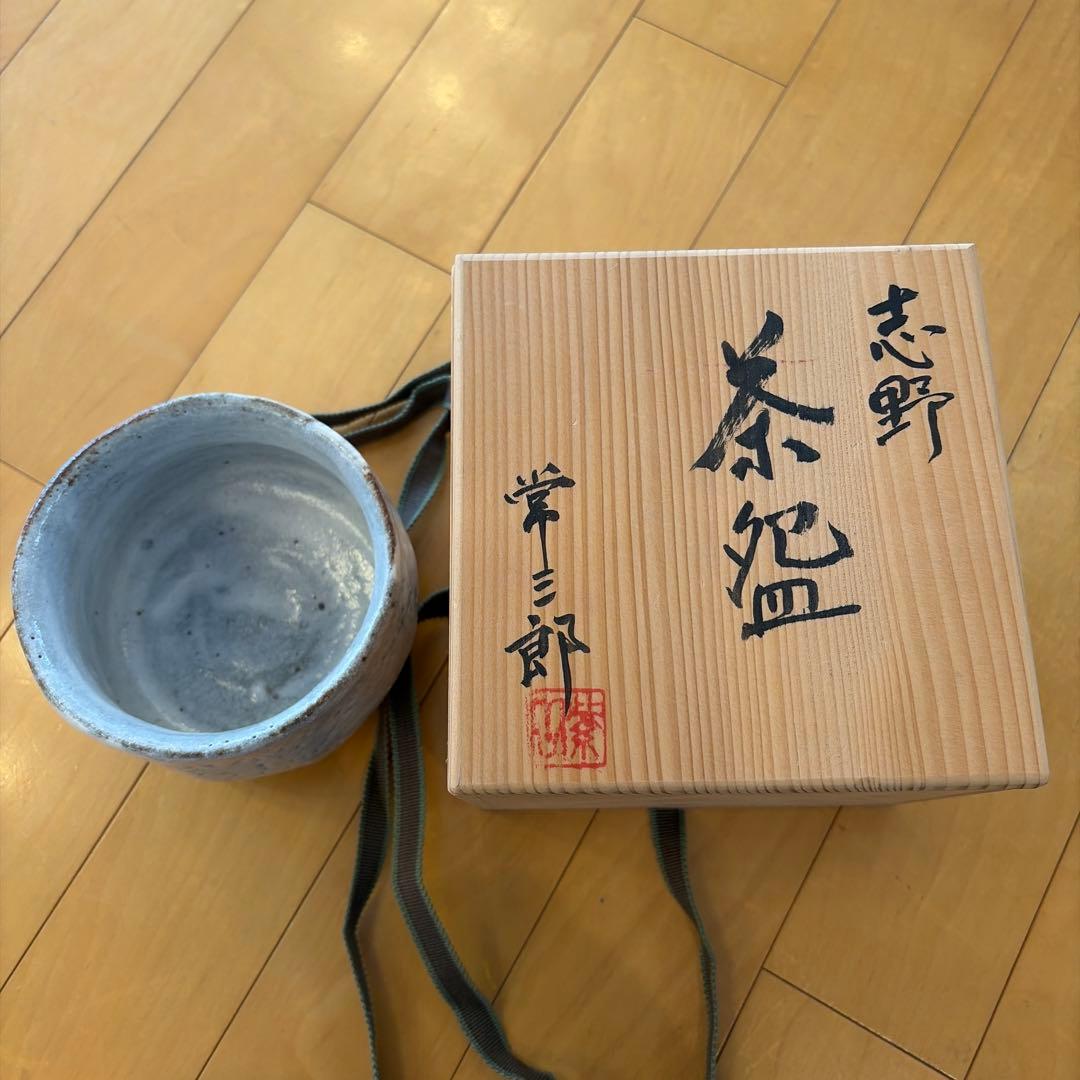 志野
茶盌
常三郎